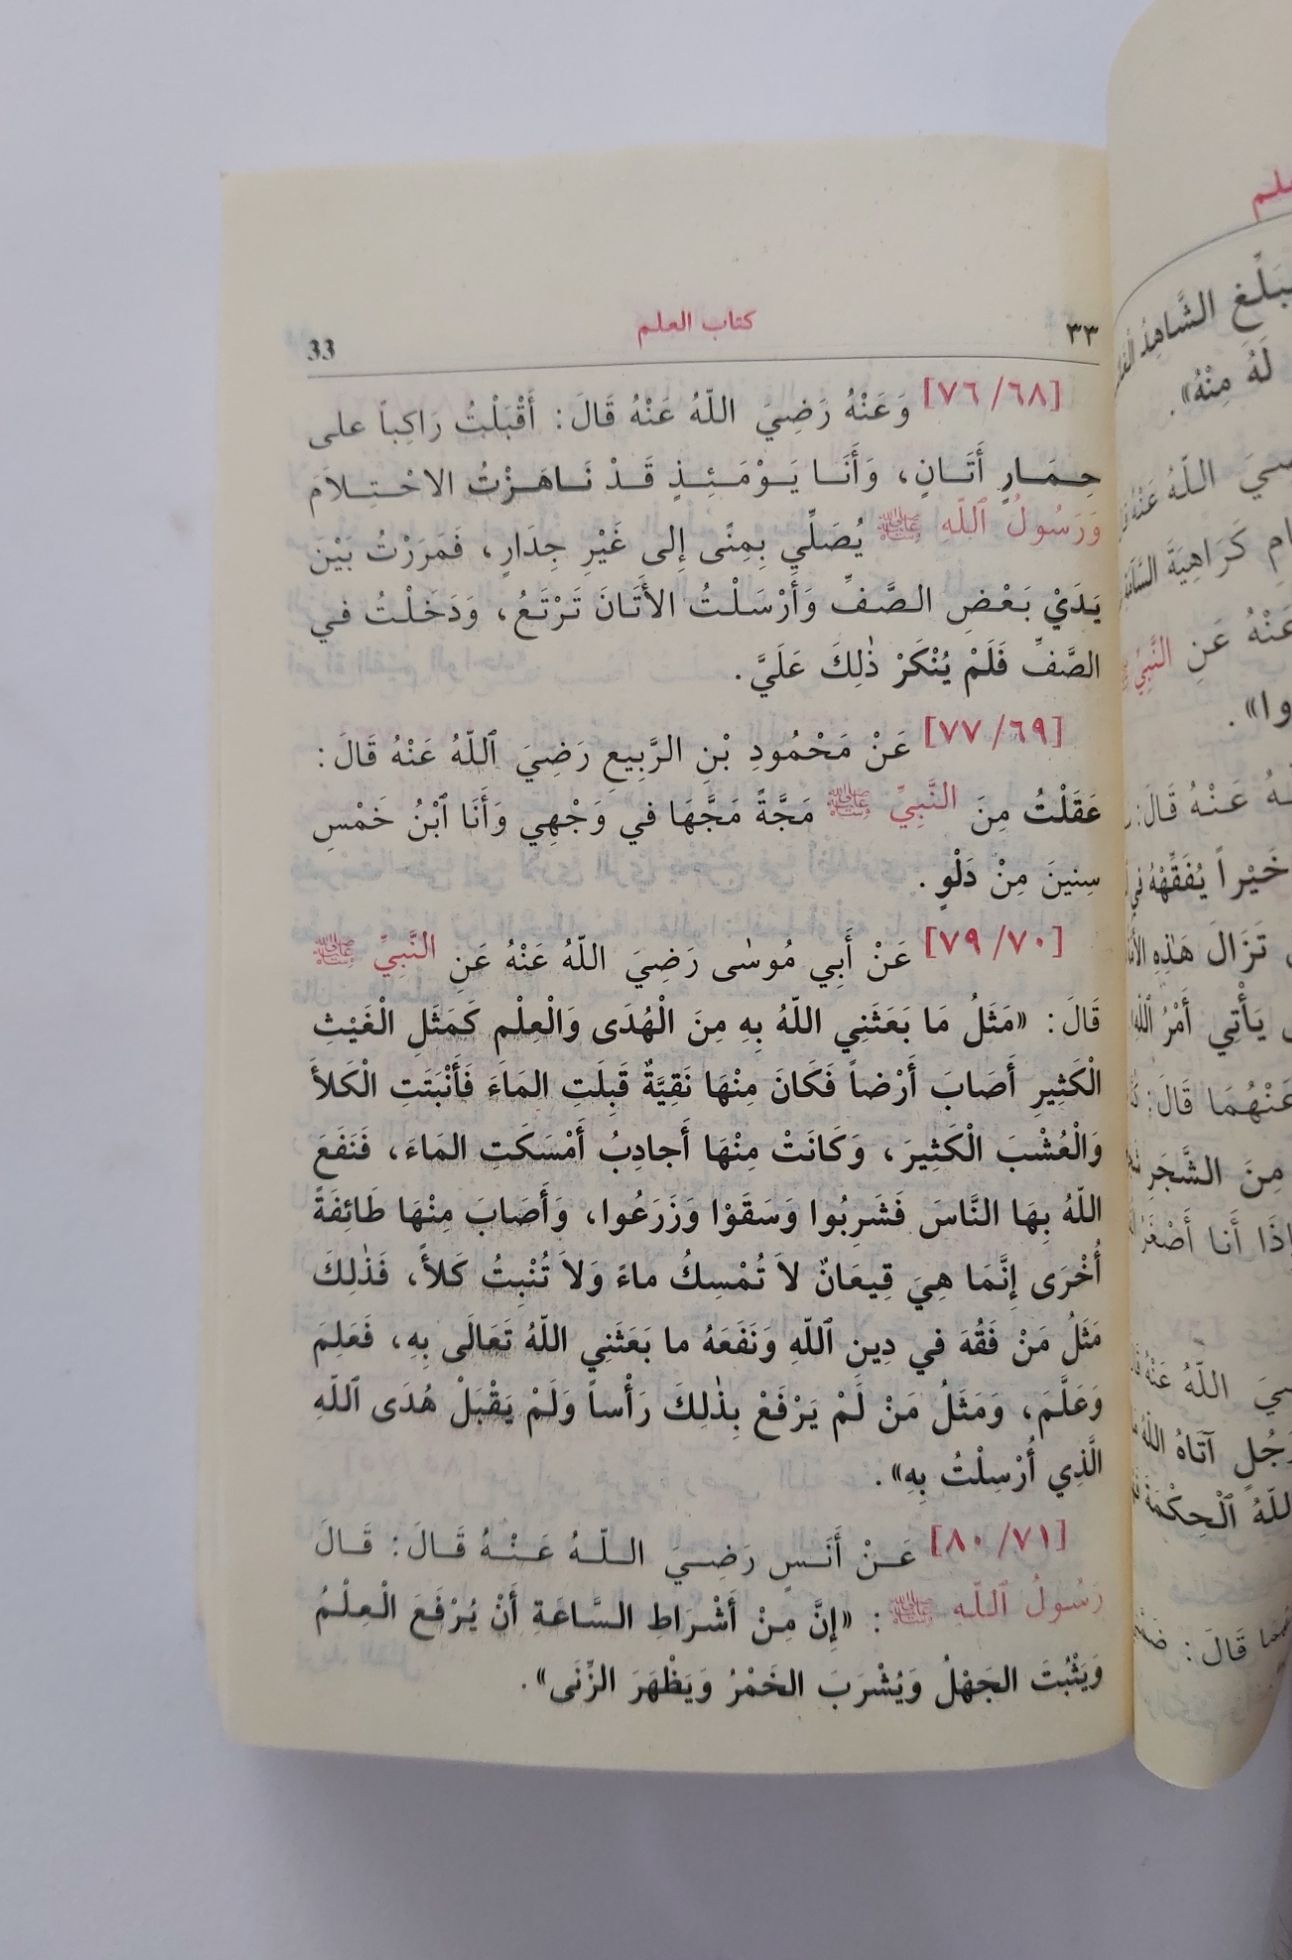 ٣٣ كتاب العلم 33
[٧٦/٦٨] وَعَنْهُ رَضِيَ اللّهُ عَنْهُ قَالَ: أَقْبَلْتُ رَاكِباً على
حِمَارٍ أَتَانٍ، وَأَنَا يَوْمَئِذٍ قَدْ نَاهَزْتُ الاحْتِلاَمَ
وَرَسُولُ ٱللّهِ ﷺ يُصَلِّي بِمِنًى إِلى غَيْرِ جِدَارٍ، فَمَرَرْتُ بَيْنَ
يَدَيْ بَعْضِ الصَّفِّ وَأَرْسَلْتُ الأَتَانَ تَرْتَعُ، وَدَخَلْتُ في
الصَّفِّ فَلَمْ يُنْكَرْ ذٰلِكَ عَلَيَّ.
[٧٧/٦٩] عَنْ مَحْمُودِ بْنِ الرَّبِيعِ رَضِيَ ٱللّهُ عَنْهُ قَالَ:
عَقَلْتُ مِنَ النَّبِيِّ ﷺ مَجَّةً مَجَّهَا في وَجْهِي وَأَنَا ٱبْنُ خَمْسِ
سِنِينَ مِنْ دَلْوٍ.
[٧٩/٧٠] عَنْ أَبِي مُوسٰى رَضِيَ اللّهُ عَنْهُ عَنِ النَّبِيِّ ﷺ
قَالَ: «مَثَلُ مَا بَعَثَنِي اللّهُ بِهِ مِنَ الْهُدَى وَالْعِلْمِ كَمَثَلِ الْغَيْثِ
الْكَثِيرِ أَصَابَ أَرْضاً فَكَانَ مِنْهَا نَقِيَّةٌ قَبِلَتِ المَاءَ فَأَنْبَتَتِ الْكَلأَ
وَالْعُشْبَ الْكَثِيرَ، وَكَانَتْ مِنْهَا أَجادِبُ أَمْسَكَتِ المَاءَ، فَنَفَعَ
اللّهُ بِهَا النَّاسَ فَشَرِبُوا وَسَقَوْا وَزَرَعُوا، وَأَصَابَ مِنْهَا طَائِفَةً
أُخْرَى إِنَّمَا هِيَ قِيعَانٌ لاَ تُمْسِكُ ماءً وَلاَ تُنْبِتُ كَلأً، فَذٰلِكَ
مَثَلُ مَنْ فَقُهَ في دِينِ ٱللّهِ وَنَفَعَهُ ما بَعَثَنِي اللّهُ تَعَالَى بِهِ، فَعَلِمَ
وَعَلَّمَ، وَمَثَلُ مَنْ لَمْ يَرْفَعْ بِذٰلِكَ رَأْساً وَلَمْ يَقْبَلْ هُدَى ٱللّهِ
الَّذِي أُرْسِلْتُ بِهِ».
[٨٠/٧١] عَنْ أَنَسٍ رَضِيَ اللّهُ عَنْهُ قَالَ: قَالَ
رَسُولُ ٱللّهِ ﷺ: «إِنَّ مِنْ أَشْرَاطِ السَّاعَة أَنْ يُرْفَعَ الْعِلْمُ
وَيَثْبُتَ الجَهْلُ وَيُشْرَبَ الخَمْرُ وَيَظْهَرَ الزِّنَى».
بَلِّغِ الشَّاهِدُ
لَهُ مِنْهُ».
اللّهُ عَنْهُ
كَرَاهِيَةَ
عَنْهُ عَنِ النَّبِيِّ
عَنْهُ قَالَ:
خَيْراً يُفَقِّهْهُ
تَزَالَ هَذِهِ
يَأْتِي أَمْرُ اللّهِ
عَنْهُمَا قَالَ:
مِنَ الشَّجَرِ
إِذَا أَنا أَصْغَرُ
اللّهُ عَنْهُ
آتَاهُ اللّهُ
اللّهُ ٱلْحِكْمَةَ
قَالَ: